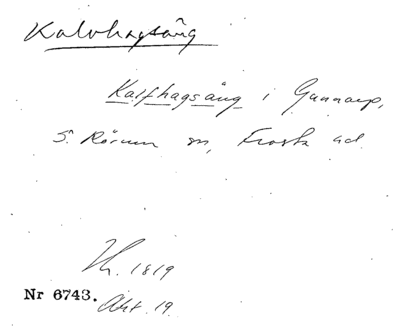 Kalvhagsäng
Kalfhagsäng i Gunnarp,
S. Rörum sn, Frosta hd
1819
Nr 6743. Akt. 19.